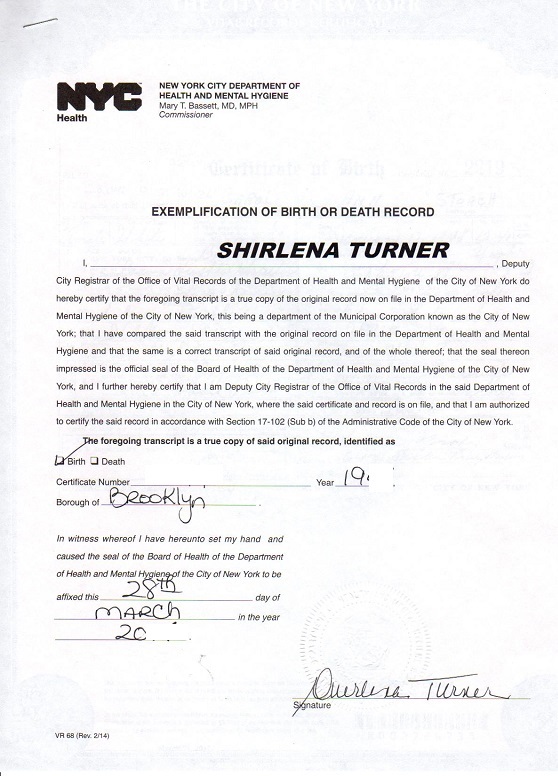 THE CITY OF NEW YORK
NYC
Health
NEW YORK CITY DEPARTMENT OF
HEALTH AND MENTAL HYGIENE
Mary T. Bassett, MD, MPH
Commissioner
Certificate of Birth
EXEMPLIFICATION OF BIRTH OR DEATH RECORD
I, SHIRLENA TURNER, Deputy
City Registrar of the Office of Vital Records of the Department of Health and Mental Hygiene of the City of New York do
hereby certify that the foregoing transcript is a true copy of the original record now on file in the Department of Health and
Mental Hygiene of the City of New York, this being a department of the Municipal Corporation known as the City of New
York; that I have compared the said transcript with the original record on file in the Department of Health and Mental
Hygiene and that the same is a correct transcript of said original record, and of the whole thereof; that the seal thereon
impressed is the official seal of the Board of Health of the Department of Health and Mental Hygiene of the City of New
York, and I further hereby certify that I am Deputy City Registrar of the Office of Vital Records in the said Department of
Health and Mental Hygiene in the City of New York, where the said certificate and record is on file, and that I am authorized
to certify the said record in accordance with Section 17-102 (Sub b) of the Administrative Code of the City of New York.
The foregoing transcript is a true copy of said original record, identified as
Birth Death
Certificate Number Year 19
Borough of Brooklyn
In witness whereof I have hereunto set my hand and
caused the seal of the Board of Health of the Department
of Health and Mental Hygiene of the City of New York to be
affixed this 28th day of
MARCH in the year
20
Shirlena Turner
Signature
VR 68 (Rev. 2/14)